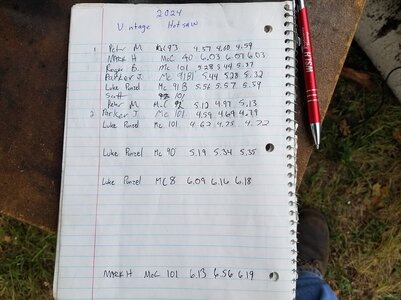 2024
Vintage Hotsaw
1 Peter M Mc 93 4.57 4.60 4.59
Mark H McC 40 6.03 6.07 6.03
Roger B. Mc 101 5.28 5.44 5.37
Parker J. Mc 91B1 5.44 5.28 5.32
Luke Penzel Mc 91B 5.56 5.57 5.59
Scott 101
Peter M McC 5.12 4.97 5.13
2 Parker J Mc 101 4.59 4.69 4.79
Luke Penzel Mc 101 4.62 4.75 4.72
Luke Penzel Mc 90 5.19 5.34 5.35
Luke Penzel MC 8 6.09 6.16 6.18
Mark H McC 101 6.13 6.56 6.19